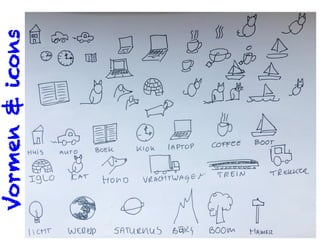 Vormen & icons
HUIS AUTO BOEK KLOK LAPTOP COFFEE BOOT
IGLO CAT HOND VRACHTWAGEN TREIN TREKKER
LICHT WERELD SATURNUS BERG BOOM HAMER